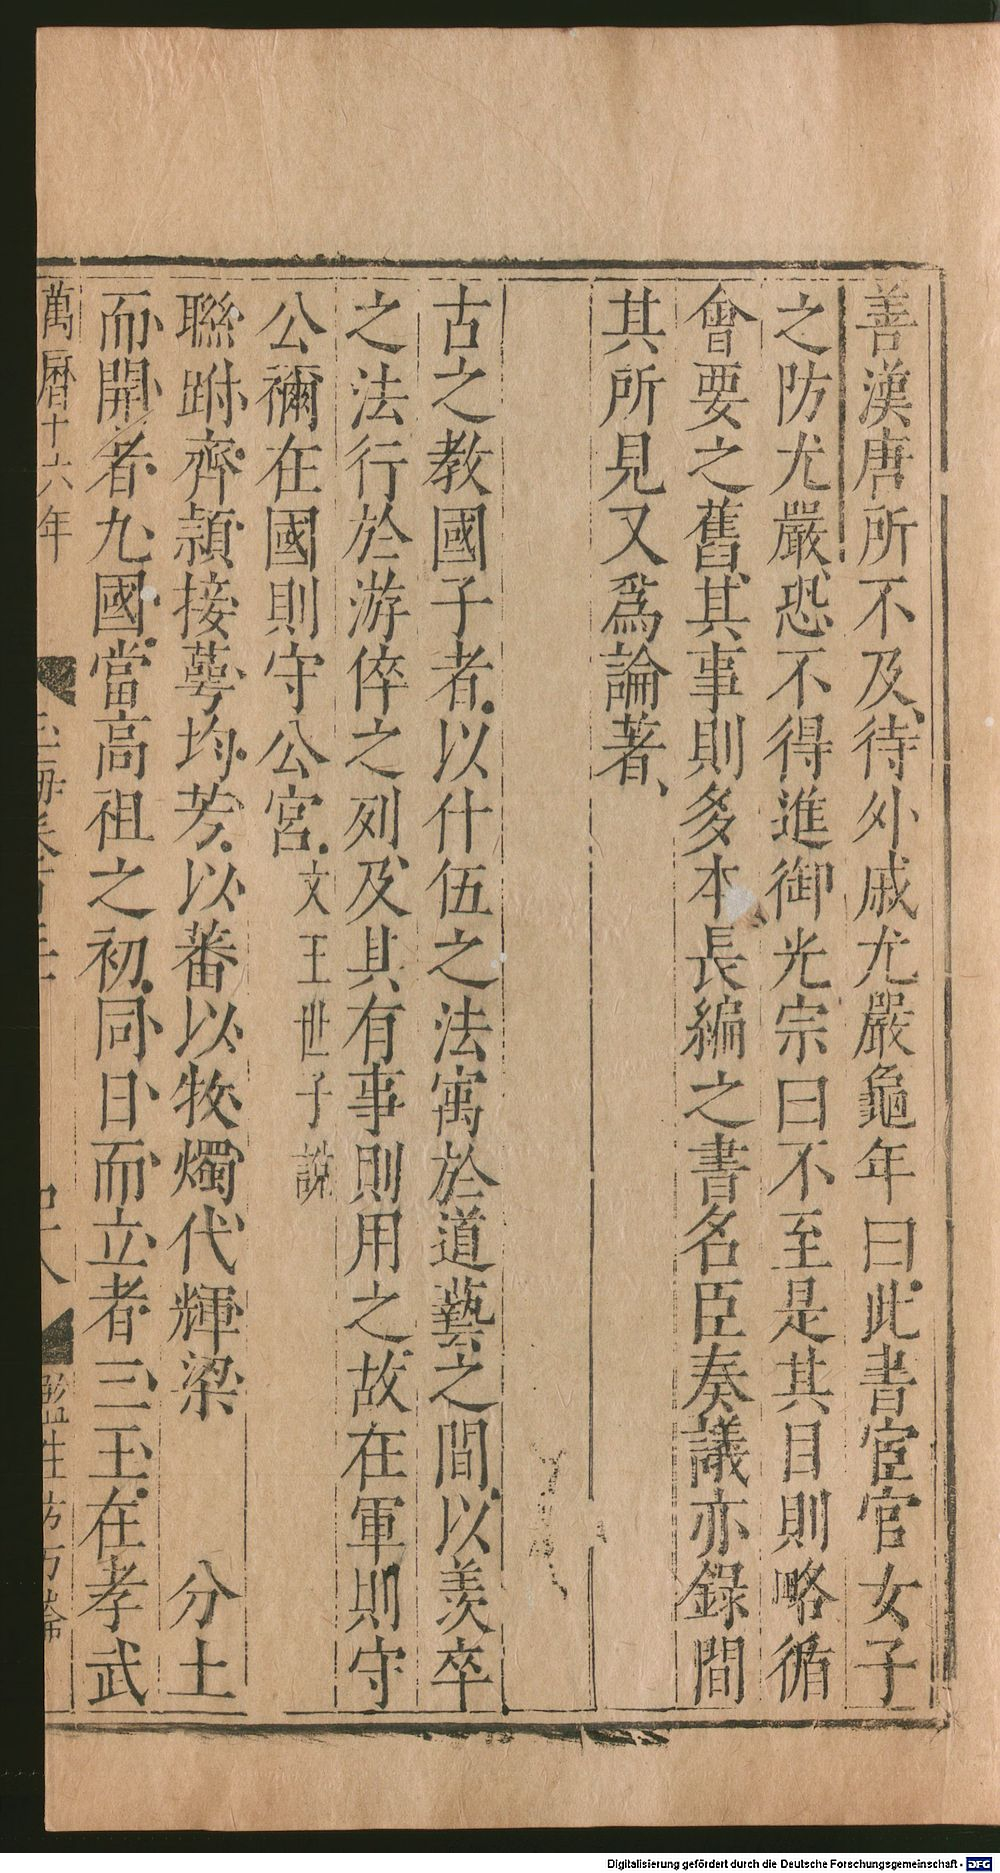 善漢唐所不及待外戚尤嚴龜年曰此書宦官女子
之防尤嚴恐不得進御光宗曰不至是其目則略循
會要之舊其事則多本長編之書名臣奏議亦錄間
其所見又爲論著
古之教國子者以什伍之法寓於道藝之間以羨卒
之法行於游倅之列及其有事則用之故在軍則守
公禰在國則守公宮文王世子說
聯跗齊頴接蕚均芳以蕃以牧燭代輝梁 分土
而開者九國當高祖之初同日而立者三王在孝武
萬曆十六年
Digitalisierung gefördert durch die Deutsche Forschungsgemeinschaft - DFG